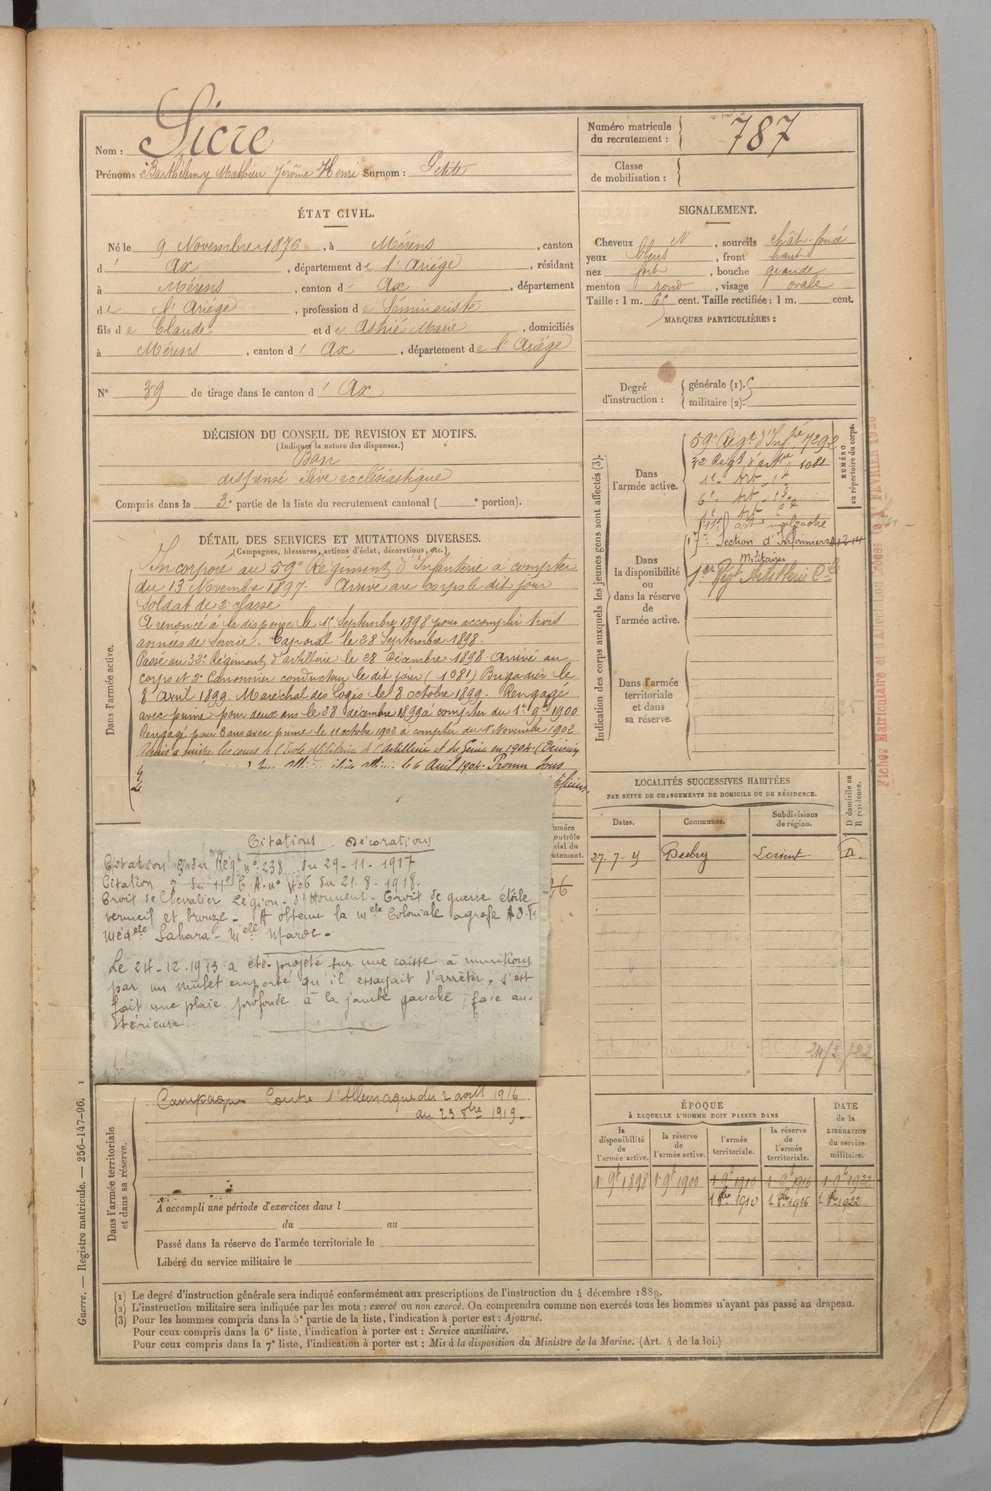 Nom : Sicre
Prénoms : Barthélemy Mathieu Jérôme Henri Surnom : Petite
Numéro matricule
du recrutement : 787
Classe
de mobilisation :
ÉTAT CIVIL.
Né le 9 Novembre 1876, à Mérens, canton
d' Ax, département de l'Ariège, résidant
à Mérens, canton d' Ax, département
de l'Ariège, profession de Séminariste
fils de Claude et de Astrié Marie, domiciliés
à Mérens, canton d' Ax, département de l'Ariège
N° 39 de tirage dans le canton d' Ax
SIGNALEMENT.
Cheveux N, sourcils chât-foncé
yeux bleus, front haut
nez fort, bouche grande
menton rond, visage ovale
Taille : 1 m. cent. Taille rectifiée : 1 m. cent.
MARQUES PARTICULIÈRES :
Degré
d'instruction :
générale (1).
militaire (2).
DÉCISION DU CONSEIL DE REVISION ET MOTIFS.
(Indiquer la nature des dispenses.)
Bon
dispensé élève ecclésiastique
Compris dans la 3e partie de la liste du recrutement cantonal ( e portion).
DÉTAIL DES SERVICES ET MUTATIONS DIVERSES.
(Campagnes, blessures, actions d'éclat, décorations, etc.)
Dans l'armée active.
Incorporé au 59e Régiment d'Infanterie à compter
du 13 Novembre 1897. Arrivé au corps le dit jour
Soldat de 2e classe
A renoncé à la dispense le 1er Septembre 1898 pour accomplir trois
années de service. Caporal le 28 Septembre 1898.
Passé au 32e Régiment d'artillerie le 28 Décembre 1898. Arrivé au
corps et 2e Canonnier conducteur le dit jour (1081) Brigadier le
8 avril 1899. Maréchal des Logis le 8 octobre 1899. Rengagé
avec prime pour deux ans le 28 décembre 1899 à compter du 1er 9bre 1900
Rengagé pour ans avec prime le 11 octobre 1902 à compter du 1er Novembre 1902
Admis à suivre les cours de l'école Militaire de l'Artillerie et du Génie en 1904. (Décision
le 6 Avril 1904. Promu Sous
Citations Décorations
Citation ordre Régt n° 238 du 29-11-1917
Citation du 11e C.A. n° 406 du 21-8-1918.
Croix de Chevalier Légion d'Honneur - Croix de guerre étoile
vermeil et bronze - A obtenu la mlle Coloniale agrafe A.O.F.
Médlle Sahara - mlle Maroc -
Le 24-12-1913 a été projeté sur une caisse à munitions
par un mulet emporté qu'il essayait d'arrêter, s'est
fait une plaie profonde à la jambe gauche, face an-
térieure
Dans l'armée territoriale
et dans sa réserve.
Campagne Contre l'Allemagne du 2 août 1914
au 23 8bre 1919.
A accompli une période d'exercices dans l
du au
Passé dans la réserve de l'armée territoriale le
Libéré du service militaire le
Indication des corps auxquels les jeunes gens sont affectés (3).
NUMÉRO
au répertoire du corps.
Dans
l'armée active.
59e Régt d'Infrie 7292
32e Régt d'artie 1081
Dans
la disponibilité
ou
dans la réserve
de
l'armée active.
17e Section d'Infirmiers 1214
Militaires
1er Régt Artillerie Cle
Dans l'armée
territoriale
et dans
sa réserve.
Fiches Matriculaire et d'Affectation
LOCALITÉS SUCCESSIVES HABITÉES
PAR SUITE DE CHANGEMENTS DE DOMICILE OU DE RÉSIDENCE.
Dates.
Communes.
Subdivisions
de région.
D domicile ou
R résidence.
Lorient D.
24/2/22
ÉPOQUE
À LAQUELLE L'HOMME DOIT PASSER DANS
la
disponibilité
de
l'armée active.
la réserve
de
l'armée active.
l'armée
territoriale.
la réserve
de
l'armée
territoriale.
DATE
de la
LIBÉRATION
du service
militaire.
1 9bre 1898
1 9bre 1900
1 9bre 1910
1 9bre 1916
1 9bre 1922
1 8bre 1910
1 8bre 1916
1 8bre 1922
Guerre. — Registre matricule. — 256-147-96. 1
(1) Le degré d'instruction générale sera indiqué conformément aux prescriptions de l'instruction du 4 décembre 1889.
(2) L'instruction militaire sera indiquée par les mots : exercé ou non exercé. On comprendra comme non exercés tous les hommes n'ayant pas passé au drapeau.
(3) Pour les hommes compris dans la 5e partie de la liste, l'indication à porter est : Ajourné.
Pour ceux compris dans la 6e liste, l'indication à porter est : Service auxiliaire.
Pour ceux compris dans la 7e liste, l'indication à porter est : Mis à la disposition du Ministre de la Marine. (Art. 4 de la loi.)